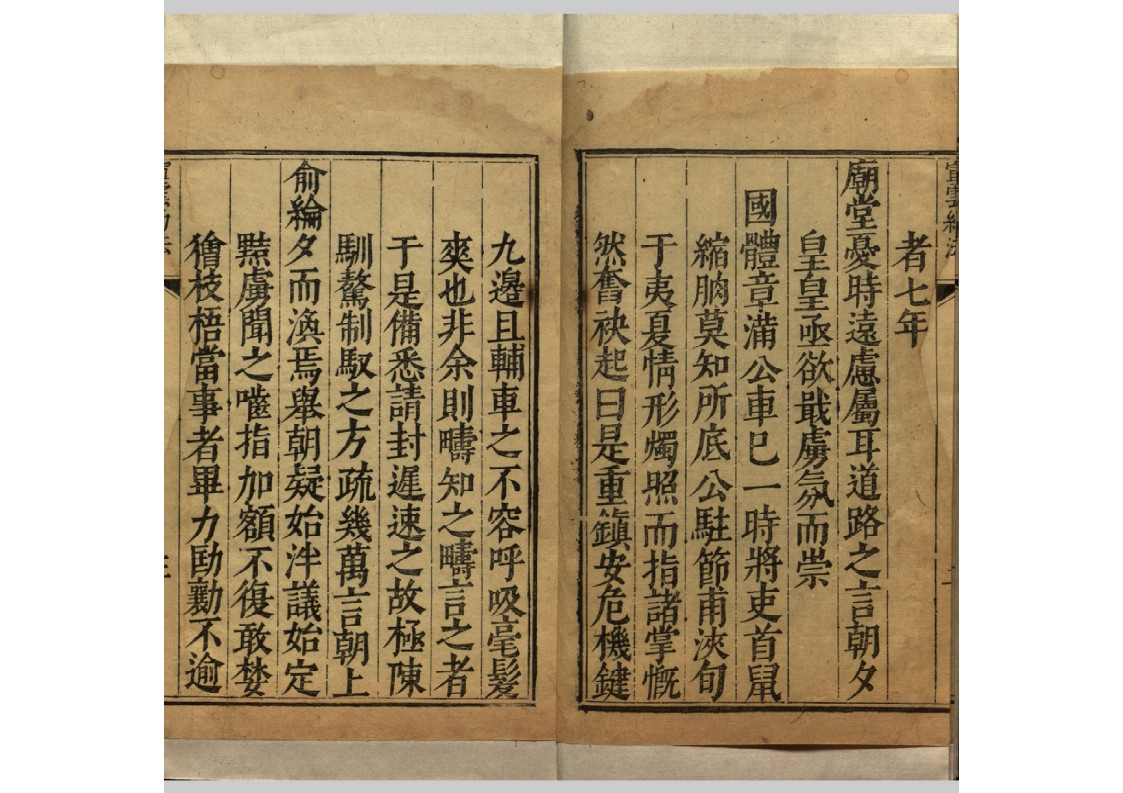 者七年
廟堂憂時遠慮屬耳道路之言朝夕
皇皇亟欲戢虜氛而崇
國體章滿公車巳一時將吏首鼠
縮朒莫知所底公駐節甫浹旬
于夷夏情形燭照而指諸掌慨
然奮袂起曰是重鎭安危機鍵
九邊且輔車之不容呼吸毫髮
爽也非余則疇知之疇言之者
于是備悉請封遲速之故極陳
馴驁制馭之方疏幾萬言朝上
俞綸夕而渙焉舉朝疑始泮議始定
黠虜聞之囓指加額不復敢婪
獪枝梧當事者畢力劻勷不逾